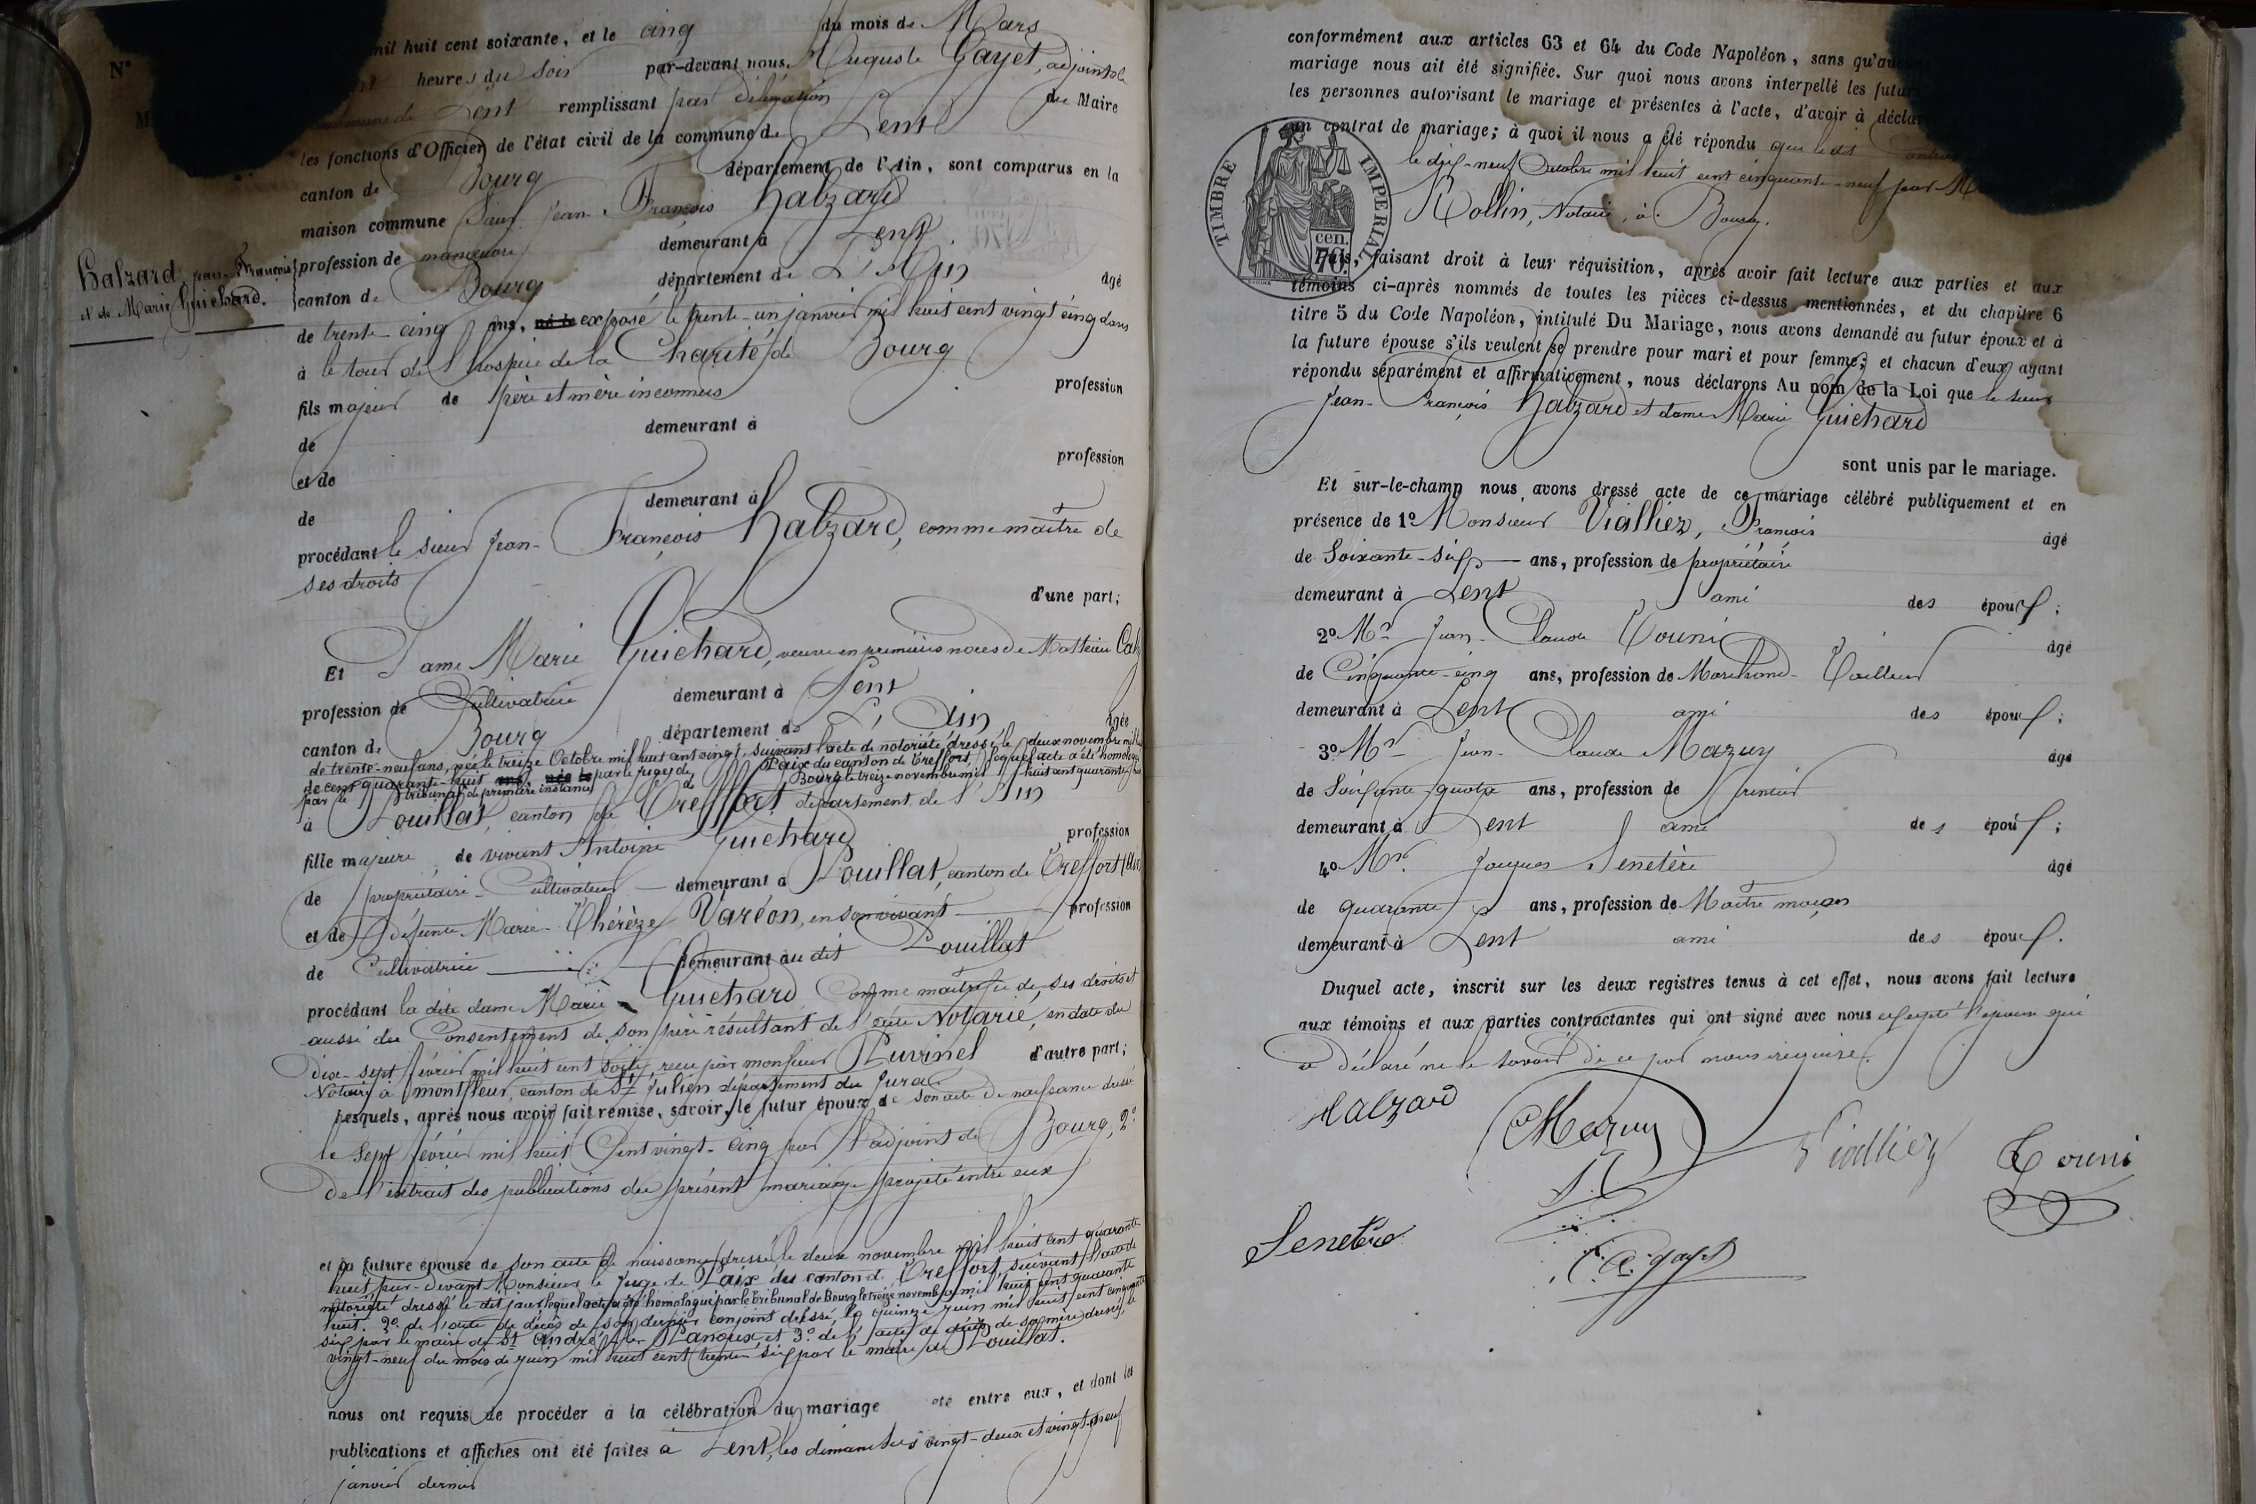 N°
mil huit cent soixante, et le cinq du mois de Mars
heures du soir par-devant nous, Auguste Gayet, adjoint de
commune de Lent remplissant par délégation du Maire
les fonctions d'Officier de l'état civil de la commune de Lent
canton de Bourg département de l'Ain, sont comparus en la
maison commune Sieur Jean-François halzard
profession de manoeuvre demeurant à Lent
halzard, jean-François
et de Marie Guichard.
canton de Bourg département de L'Ain âgé
de trente-cinq ans, né le exposé le trente-un janvier mil huit cent vingt cinq dans
à le tour de l'hospice de la Charité de Bourg
fils majeur de père et mère inconnus profession
de demeurant à
et de profession
de demeurant à
procédant le sieur Jean-François halzard, comme maître de
ses droits
d'une part;
Et Dame Marie Guichard, veuve en premières noces de Mathieu
profession de Cultivatrice demeurant à Lent
canton de Bourg département de L'Ain âgée
de trente-neuf ans, née le treize Octobre mil huit cent vingt, suivant l'acte de notoriété dressé le deux novembre mil
de cent quarante-huit ans, née le par le juge de Paix du canton de Treffort, lequel acte a été homologué
par le tribunal de première instance de Bourg le treize novembre mil huit cent quarante-huit
à Pouillat, canton de Treffort, département de l'Ain
fille majeure de vivant Antoine Guichard profession
de propriétaire-Cultivateur demeurant à Pouillat, canton de Treffort (Ain)
et de défunte Marie-Thérèze Varéon, en son vivant profession
de Cultivatrice demeurant au dit Pouillat
procédant la dite dame Marie Guichard Comme maîtresse de ses droits et
aussi du Consentement de son père résultant de l'acte Notarié, en date du
dix-sept février mil huit cent soixante, reçu par monsieur Puvinel d'autre part;
Notaire à montfleur, canton de St Julien département du Jura
Lesquels, après nous avoir fait remise, savoir, le futur époux de son acte de naissance dressé
le Sept février mil huit Cent vingt-cinq par l'adjoint de Bourg, 2°
De l'extrait des publications du présent mariage projeté entre eux
et la future épouse de son acte de naissance dressé le deux novembre mil huit cent quarante
huit, par-devant Monsieur le Juge de Paix du canton de Treffort, suivant l'acte de
notoriété dressé le dit jour lequel acte a été homologué par le Tribunal de Bourg le treize novembre mil huit cent quarante
huit. 2° de l'acte de décès de son dernier conjoint dressé, le quinze juin mil huit cent cinquante
six par le maire de St André-le-Panoux et 3° de l'acte de décès de sa mère dressé, le
vingt-neuf du mois de juin mil huit cent trente six par le maire de Pouillat.
nous ont requis de procéder à la célébration du mariage entre eux, et dont les
publications et affiches ont été faites à Lent, les dimanches vingt-deux et vingt-neuf
janvier dernier
conformément aux articles 63 et 64 du Code Napoléon, sans qu'aucune
mariage nous ait été signifiée. Sur quoi nous avons interpellé les futurs
les personnes autorisant le mariage et présentes à l'acte, d'avoir à déclarer
un contrat de mariage; à quoi il nous a été répondu que ledit
le dix-neuf Octobre mil huit cent cinquante-neuf par M
Rollin, Notaire, à Bourg.
TIMBRE IMPERIAL
cen.
70.
Puis, faisant droit à leur réquisition, après avoir fait lecture aux parties et aux
témoins ci-après nommés de toutes les pièces ci-dessus mentionnées, et du chapitre 6
titre 5 du Code Napoléon, intitulé Du Mariage, nous avons demandé au futur époux et à
la future épouse s'ils veulent se prendre pour mari et pour femme; et chacun d'eux ayant
répondu séparément et affirmativement, nous déclarons Au nom de la Loi que le sieur
Jean-François halzard et dame Marie Guichard
sont unis par le mariage.
Et sur-le-champ nous avons dressé acte de ce mariage célébré publiquement et en
présence de 1° Monsieur Vialliez, François âgé
de Soixante-six ans, profession de propriétaire
demeurant à Lent ami des époux;
2° Mr Jean-Claude Touni âgé
de Cinquante-cinq ans, profession de Marchand-Tailleur
demeurant à Lent ami des époux;
3° Mr Jean-Claude Mazuy âgé
de Soixante-quatre ans, profession de
demeurant à Lent ami des époux;
4° Mr. Jacques Senetère âgé
de quarante ans, profession de Maître maçon
demeurant à Lent ami des époux.
Duquel acte, inscrit sur les deux registres tenus à cet effet, nous avons fait lecture
aux témoins et aux parties contractantes qui ont signé avec nous excepté l'épouse qui
a déclaré ne le savoir de ce par nous requise.
Halzard Mazuy Vialliez Touni
J. C
Senetere
A. gayet